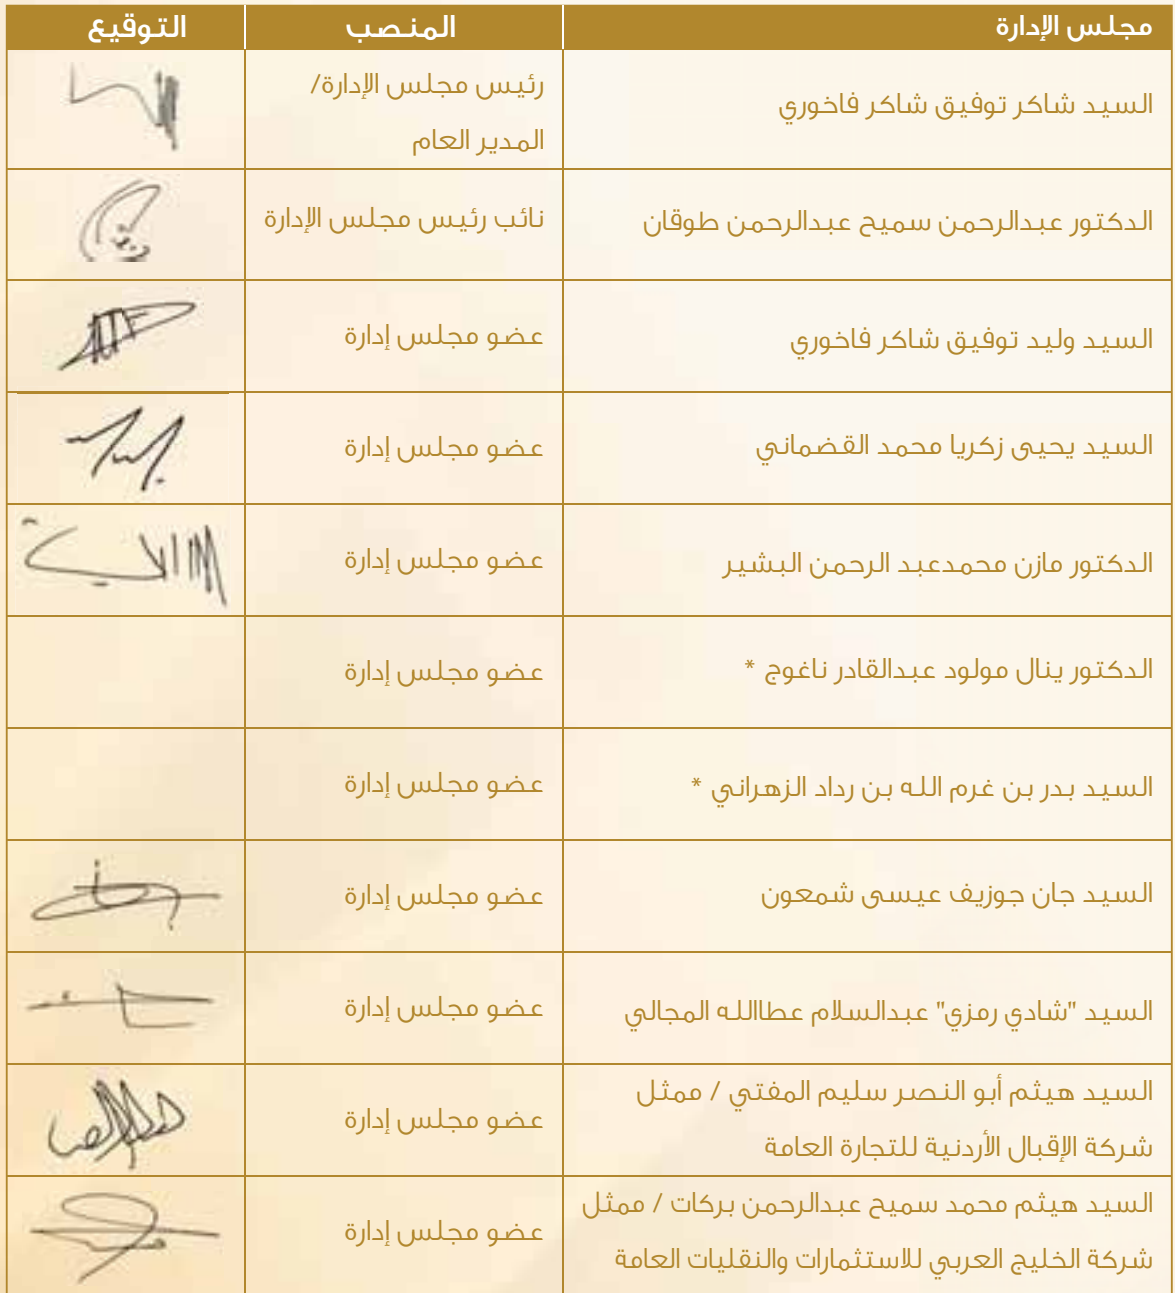 مجلس الإدارة المنصب التوقيع
السيد شاكر توفيق شاكر فاخوري رئيس مجلس الإدارة/
المدير العام
الدكتور عبدالرحمن سميح عبدالرحمن طوقان نائب رئيس مجلس الإدارة
السيد وليد توفيق شاكر فاخوري عضو مجلس إدارة
السيد يحيى زكريا محمد القضماني عضو مجلس إدارة
الدكتور مازن محمدعبد الرحمن البشير عضو مجلس إدارة
الدكتور ينال مولود عبدالقادر ناغوج * عضو مجلس إدارة
السيد بدر بن غرم الله بن رداد الزهراني * عضو مجلس إدارة
السيد جان جوزيف عيسى شمعون عضو مجلس إدارة
السيد "شادي رمزي" عبدالسلام عطاالله المجالي عضو مجلس إدارة
السيد هيثم أبو النصر سليم المفتي / ممثل
شركة الإقبال الأردنية للتجارة العامة عضو مجلس إدارة
السيد هيثم محمد سميح عبدالرحمن بركات / ممثل
شركة الخليج العربي للاستثمارات والنقليات العامة عضو مجلس إدارة